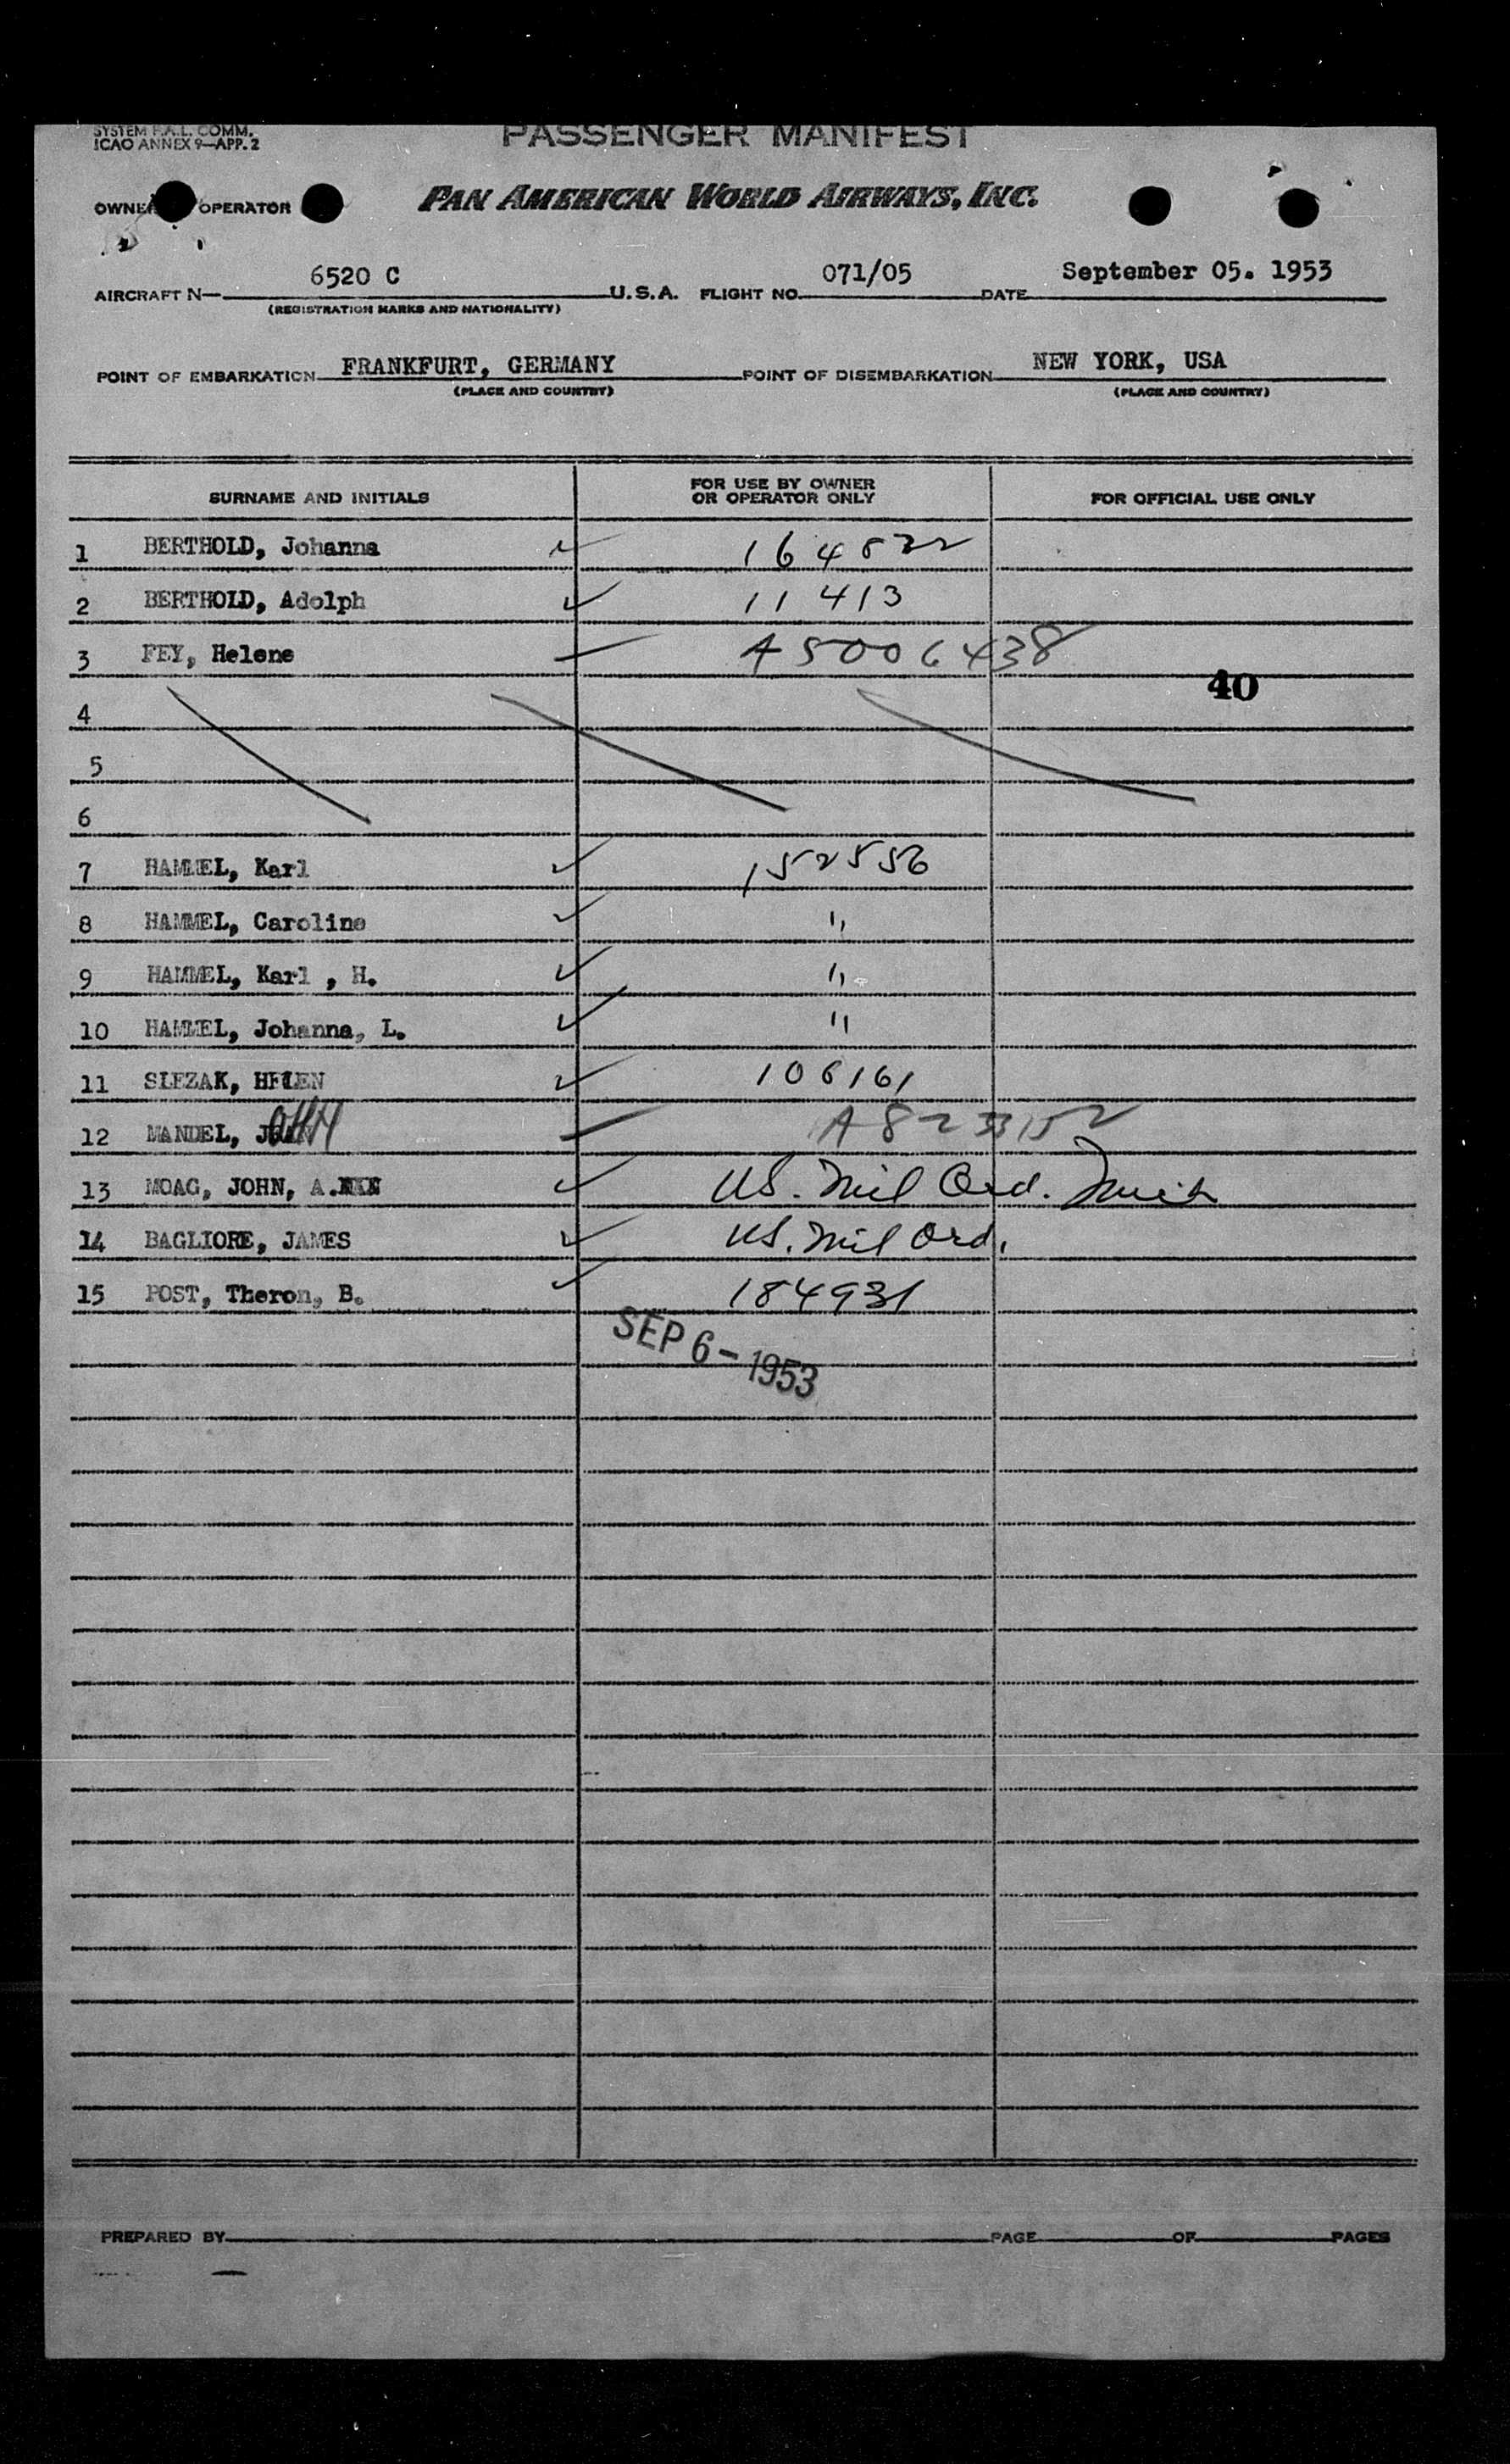 SYSTEM F.A.L. COMM.
ICAO ANNEX 9—APP. 2
PASSENGER MANIFEST
OWNER OPERATOR PAN AMERICAN WORLD AIRWAYS, INC.
AIRCRAFT N— 6520 C U.S.A. FLIGHT NO. 071/05 DATE September 05. 1953
(REGISTRATION MARKS AND NATIONALITY)
POINT OF EMBARKATION FRANKFURT, GERMANY POINT OF DISEMBARKATION NEW YORK, USA
(PLACE AND COUNTRY) (PLACE AND COUNTRY)
SURNAME AND INITIALS FOR USE BY OWNER OR OPERATOR ONLY FOR OFFICIAL USE ONLY
1 BERTHOLD, Johanna 164822
2 BERTHOLD, Adolph 11413
3 FEY, Helene A5006438
40
4
5
6
7 HAMMEL, Karl 152556
8 HAMMEL, Caroline "
9 HAMMEL, Karl , H. "
10 HAMMEL, Johanna, L. "
11 SLEZAK, HELEN 106161
12 MANDEL, A8233152
13 MOAG, JOHN, A. US. Mil Ord.
14 BAGLIORE, JAMES US. Mil Ord.
15 POST, Theron, B. 184931
SEP 6 - 1953
PREPARED BY PAGE OF PAGES